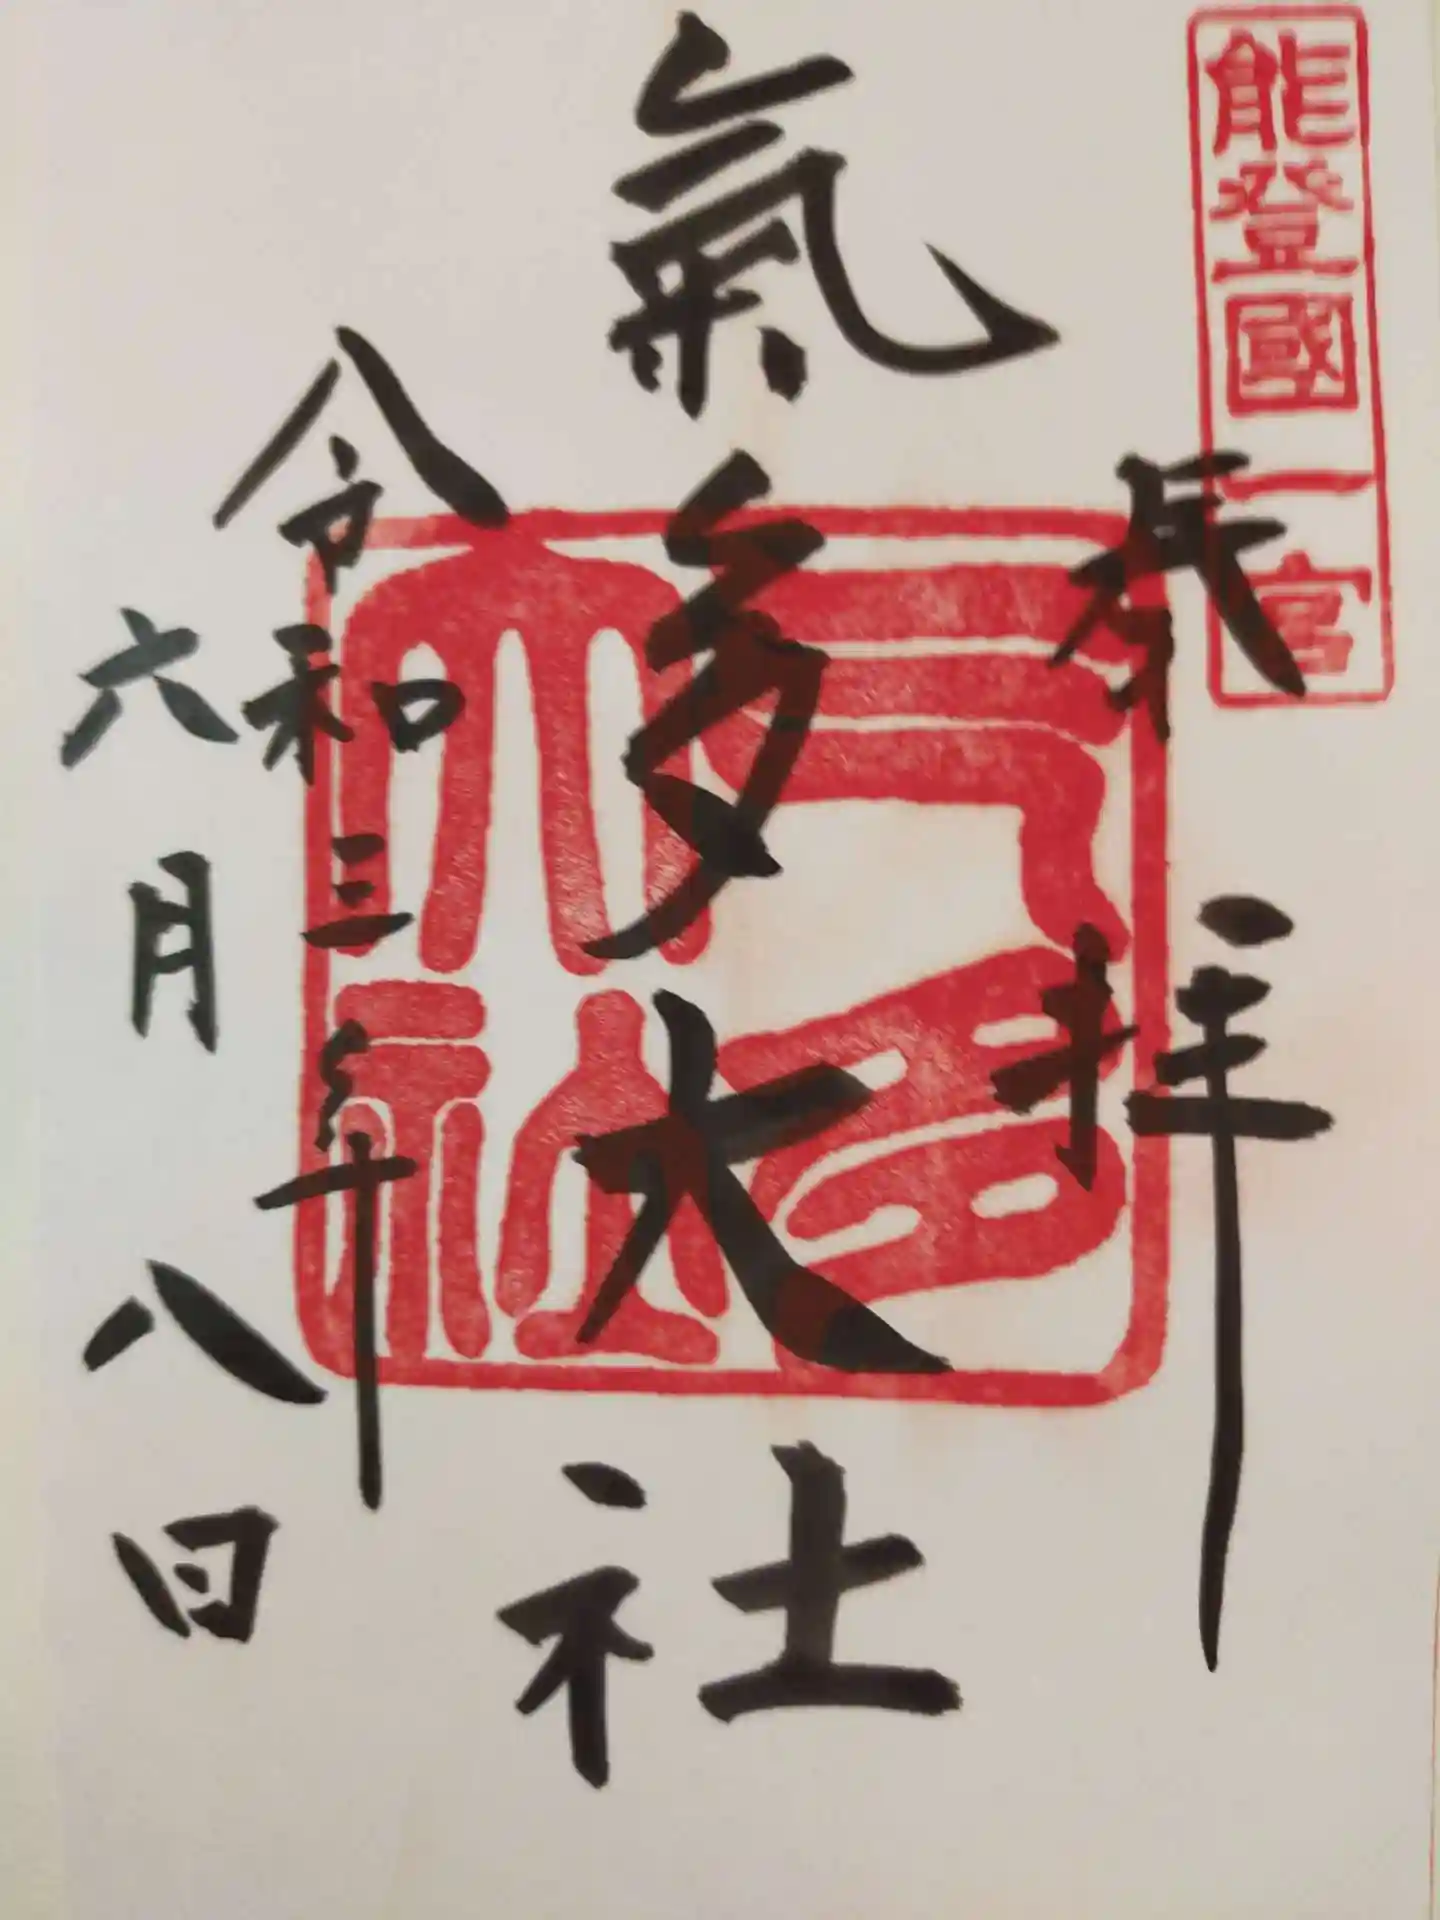 能登國一宮
奉拝
氣多大社
氣多大社
令和三年
六月八日